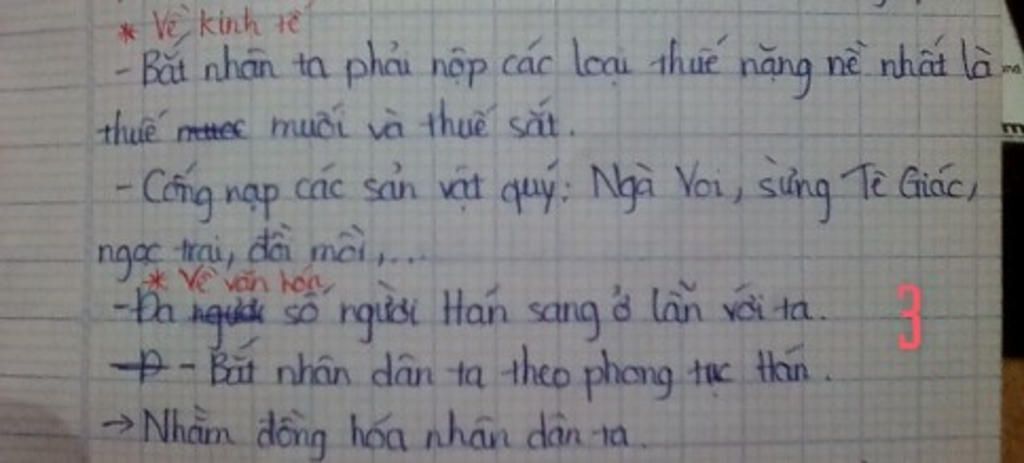 * Về kinh tế
- Bắt nhân ta phải nộp các loại thuế nặng nề nhất là
thuế muối và thuế sắt.
- Cống nạp các sản vật quý: Ngà Voi, sừng Tê Giác,
ngọc trai, đồi mồi,...
* Về văn hóa
- Đa số người Hán sang ở lẫn với ta.
- Bắt nhân dân ta theo phong tục Hán.
→ Nhằm đồng hóa nhân dân ta.
3